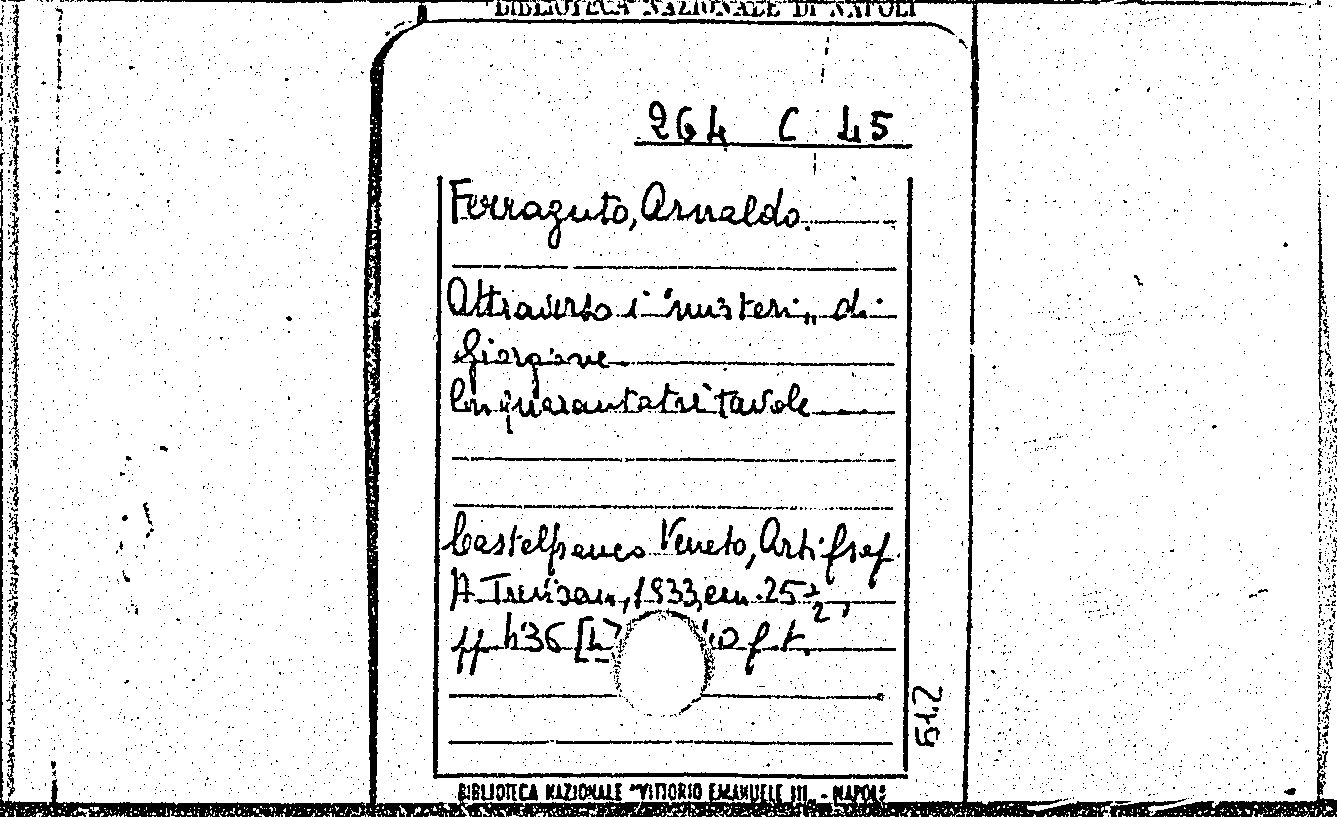 BIBLIOTECA NAZIONALE DI NAPOLI
264 C 45
Ferraguto, Arnaldo.
Attraverso i "misteri„ di
Giorgione
Cinquantatré tavole
Castelfranco Veneto, Arti graf.
A. Trevisan, 1933, cm. 25 ½,
pp. 436 [4] f. t.
51.2
BIBLIOTECA NAZIONALE "VITTORIO EMANUELE III„ - NAPOLI